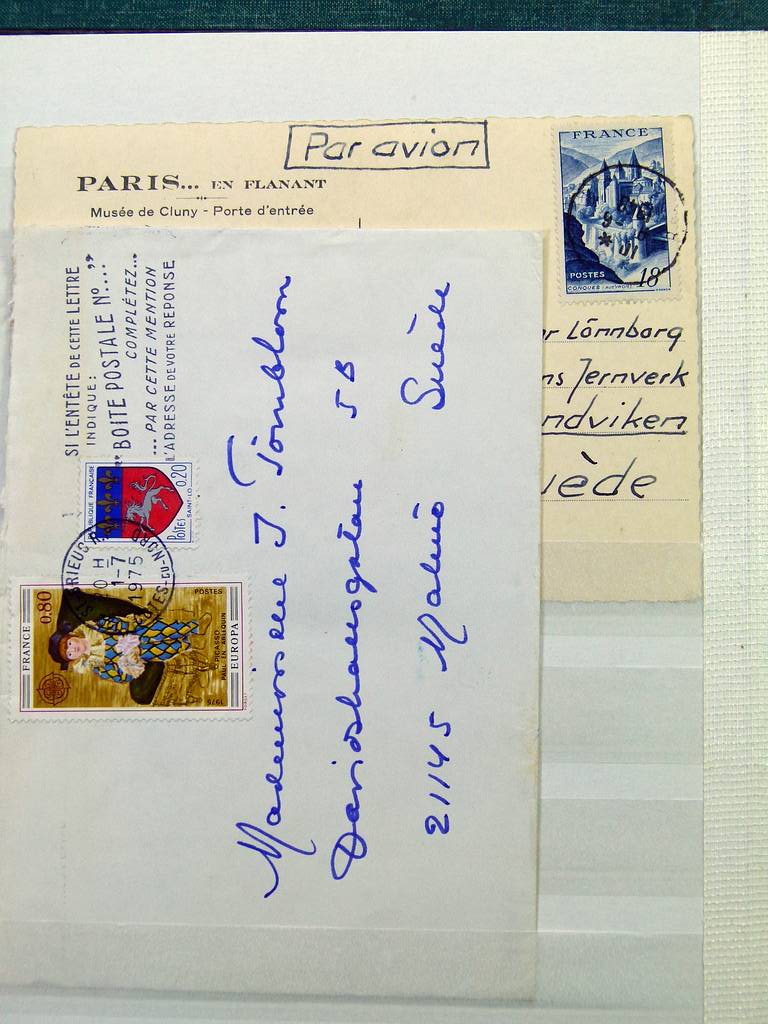 Par avion
PARIS... EN FLANANT
Musée de Cluny - Porte d'entrée
FRANCE
POSTES 18F
CONQUES (AVEYRON)
Lönnborg
Jernverk
ndviken
uède
SI L'ENTÊTE DE CETTE LETTRE
INDIQUE:
"BOITE POSTALE No....."
COMPLÉTEZ...
... PAR CETTE MENTION
L'ADRESSE DE VOTRE REPONSE
RÉPUBLIQUE FRANÇAISE
POSTES 0,20
SAINT-LO
ST BRIEUC
1-7
1975
CÔTES-DU-NORD
FRANCE
0.80
POSTES
PICASSO
PAUL EN ARLEQUIN
EUROPA
1975
Mademoiselle J. Törnblom
Davidshallsgatan 5B
21145 Malmö Suède